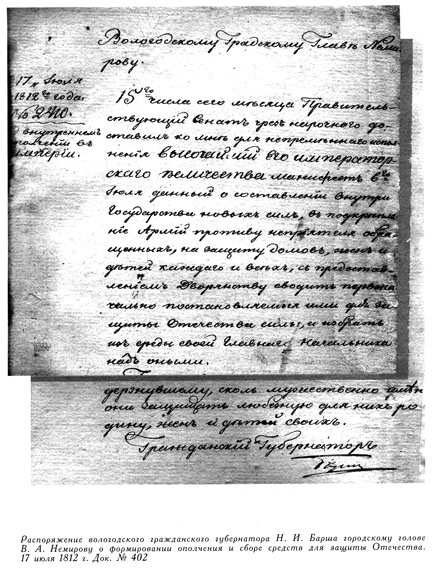 Вологодскому Градскому Главѣ Неми-
рову.
17 Июля
1812го года.
№ 240.
внутреннем
полчении въ
имперіи.
15го числа сего мѣсяца Правитель-
ствующій Сенатъ чрезъ нарочного до-
ставилъ ко мнѣ для непремѣннаго испол-
ненія высочайшій его император-
скаго величества манифестъ въ
Июля данный о составленіи внутри
Государства новыхъ силъ, въ подкрѣпле-
ніе Армій противу непріятеля обра-
щенныхъ, на защиту домовъ, женъ и
дѣтей каждаго и всѣхъ, съ предостав-
леніемъ Дворянству сводить первона-
чально постановляемыя или для за-
щиты Отечества силы, и избрать
изъ среды своей Главнаго начальника
надъ оными.
дерзнувшему, сколь мужественно
они защищать любезную для нихъ ро-
дину, женъ и дѣтей своихъ.
Гражданскій Губернаторъ
Барш
Распоряжение вологодского гражданского губернатора Н. И. Барша городскому голове
В. А. Немирову о формировании ополчения и сборе средств для защиты Отечества.
17 июля 1812 г. Док. № 402